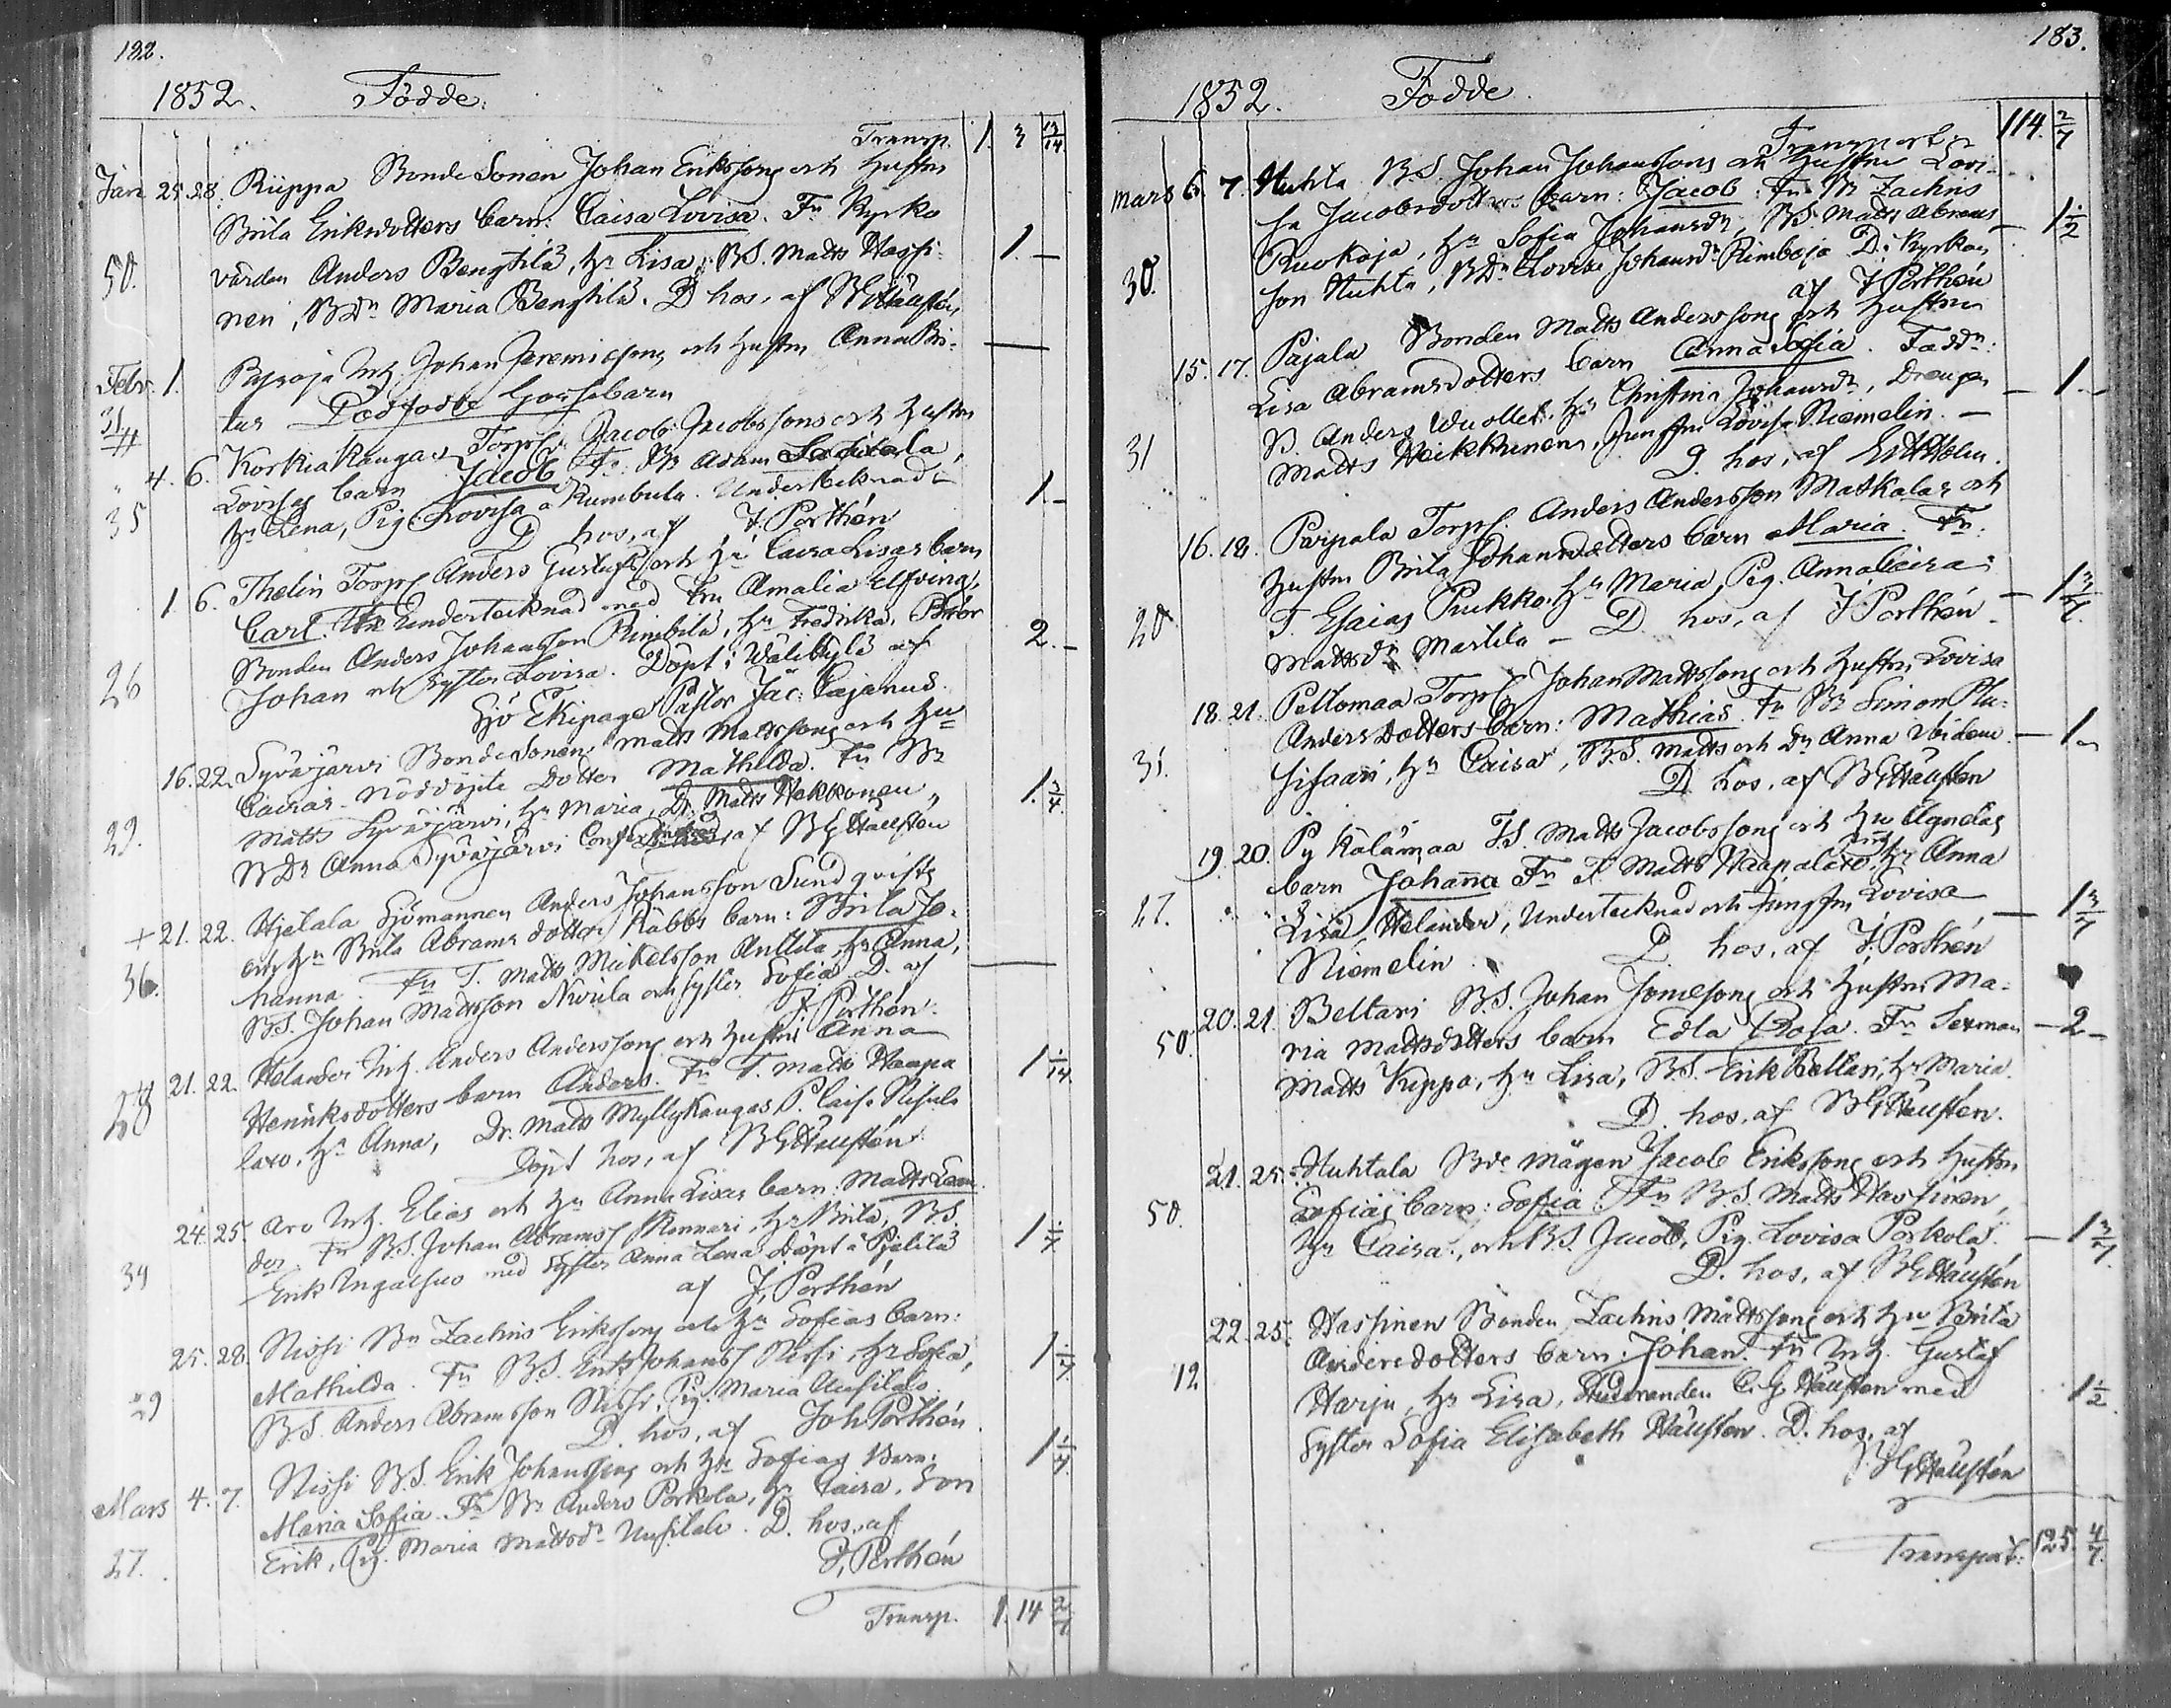 182.
1852. Födde:
Transp. 1. 3 13/14
Jan 25. 28. Riippa BondeSonen Johan Erikssons och hustru
Brita Eriksdotters barn: Caisa Lovisa. Fr Kyrko
50. värden Anders Bengtilä, hu Lisa, BS. Matts Hassi- 1. –
nen, BDr Maria Bengtilä. D. hos, af BGHällfón
Febr. 1. Johan Jeremiæsons och hustru Anna Bri-
tas Dödfödde Gossebarn
31
4. 6. Korkiakangas Torp. Jacob Jacobssons och hustru
Lovisas barn Jacob Fr. Br Adam
35 hu Lena, Pig. Lovisa Rumbula. Undertecknad 1. –
D. hos, af J. Porthén
1. 6. Thelin Torp. Anders Gustafs och hu Caisa Lisas barn
Carl. Undertecknad med Fru Amalia Elfving,
Bonden Anders Johansson Rimbilä, hu Fredrika, Bror 2. –
26 Johan och Syster Lovisa. Döpt i Wälikylä af
Sjö Ekipage Pastor Jac: Cajanus.
16. 22. Syväjärvi BondeSonen Matts Mattssons och hu
Caisas Nöddöpte Dotter Mathilda. Fr Br
Matts Syväjärvi, hu Maria, Dr. Matts Hekkonen, 1. 3/4
29. BDr Anna Syväjärvi af BGHällfón
+ 21. 22. Hjelala Sjömannen Anders Johansson Sundqvists
och hu Brita Abrams dotter Rabbs barn: Brita Jo-
36. hanna. Fr T. Matts Mickelsson Anttila, hu Anna,
BS. Johan Mattsson Nivula och syster Sofia D. af
J. Porthén.
21. 22. Helander Inh. Anders Anderssons och hustru Anna
Henriksdotters barn Anders. Fr T. Matts Haapa 1 1/14
28 laxo, hu Anna, Dr. Matts Myllykangas P. Caisa
Döpt hos, af BGHällfón
24. 25. Aro Inh. Elias och hu Anna Lisas barn Matts Lean-
der. Fr BS. Johan Abrams Rannari, hu Brita, BS. 1 1/7
34 Erik Ingalsuo med Syster Anna Lena Döpt å Pjelilä
af J. Porthén
25. 28. Nissi Bn Zachris Erikssons och hu Sofias barn:
Mathilda. Fr BS. Erik Johans Nissi, hu Sofia, 1 1/7
29 BS. Anders Abramsson Nissi, Pig. Maria Uusitalo
D. hos, af Joh. Porthén
Mars 4. 7. Nissi BS. Erik Johanssons och hu Sofias Barn: 1 1/7
Maria Sofia. Fr Br Anders Porkola, hu Caisa, Son
27. Erik, Pig. Maria Mattsdr Uusitalo. D. hos, af
J. Porthén
Transp. 1. 14 2/7
183.
1852. Födde.
Transport 114. 2/7
Mars 6. 7. Huhta BS. Johan Johanssons och hustru Lovi-
sa Jacobsdotters barn: Jacob. Fr Br Zachris
Ruokoja, hu Sofia Johansdr, BS. Matts Abrams – 1 1/2
30. son Huhta, BDr Lovisa Johansdr Rimboja D. i Kyrkan
af J. Porthén
15. 17. Pajala Bonden Matts Anderssons och hustru
Lisa Abramsdotters barn Anna Sofia. Faddr:
B. Anders Wuollet, hu Christina Johansdr, Drengen – 1. –
31 Matts Heikkinen, Jungfru Lovisa Niemelin. –
D. hos, af
16. 18. Parpala Torp. Anders Andersson Matkalas och
hustru Brita Johansdotters barn Maria. Fr.
T. Esaias Puckko, hu Maria, Pig. Anna Caisa – 1 3/7.
20 Mattsdr Martila – D. hos, af J Porthén
18. 21. Peltomaa Torp. Johan Mattssons och hustru Lovisa
AndersDotters barn: Mathias. Fr Br Simon Plu-
31. hisaari, hu Caisa, B.S. Matts och Dr Anna – 1 –
D. hos, af BGHällfón
19. 20. Pykälämaa T.S. Matts Jacobssons och hu Agnetas
barn Johanna Fr T. Matts Haapalaxo, hu Anna
27. Lisa, Helander, Undertecknad och Jungfru Lovisa – 1 3/7
Niemelin. D. hos, af J. Porthén
20. 21. Beltari BS. Johan Jonæsons och hustru Ma-
50. ria Mattsdotters barn Edla Rosa. Fr Sexman – 2 –
Matts Kippo, hu Lisa, BS. Erik Beltari, hu Maria.
D. hos, af BGHällfón.
21. 25. Huhtala Bde Mågen Jacob Erikssons och hustru
50. Sofias barn: Sofia. Fr BS. Matts Hassinen,
hu Caisa, och BS. Jacob, Pig. Lovisa Porkola. – 1 3/7.
D. hos, af BGHällfón
22. 25. Hassinen Bonden Zachris Mattssons och hu Brita
Andersdotters barn: Johan. Fr Inh. Gustaf
12 Harju, hu Lisa, Studeranden C. G. Hällfón med 1 1/2.
Syster Sofia Elisabeth Hällfón. D. hos, af
BGHällfón
Transport: 125. 4/7.